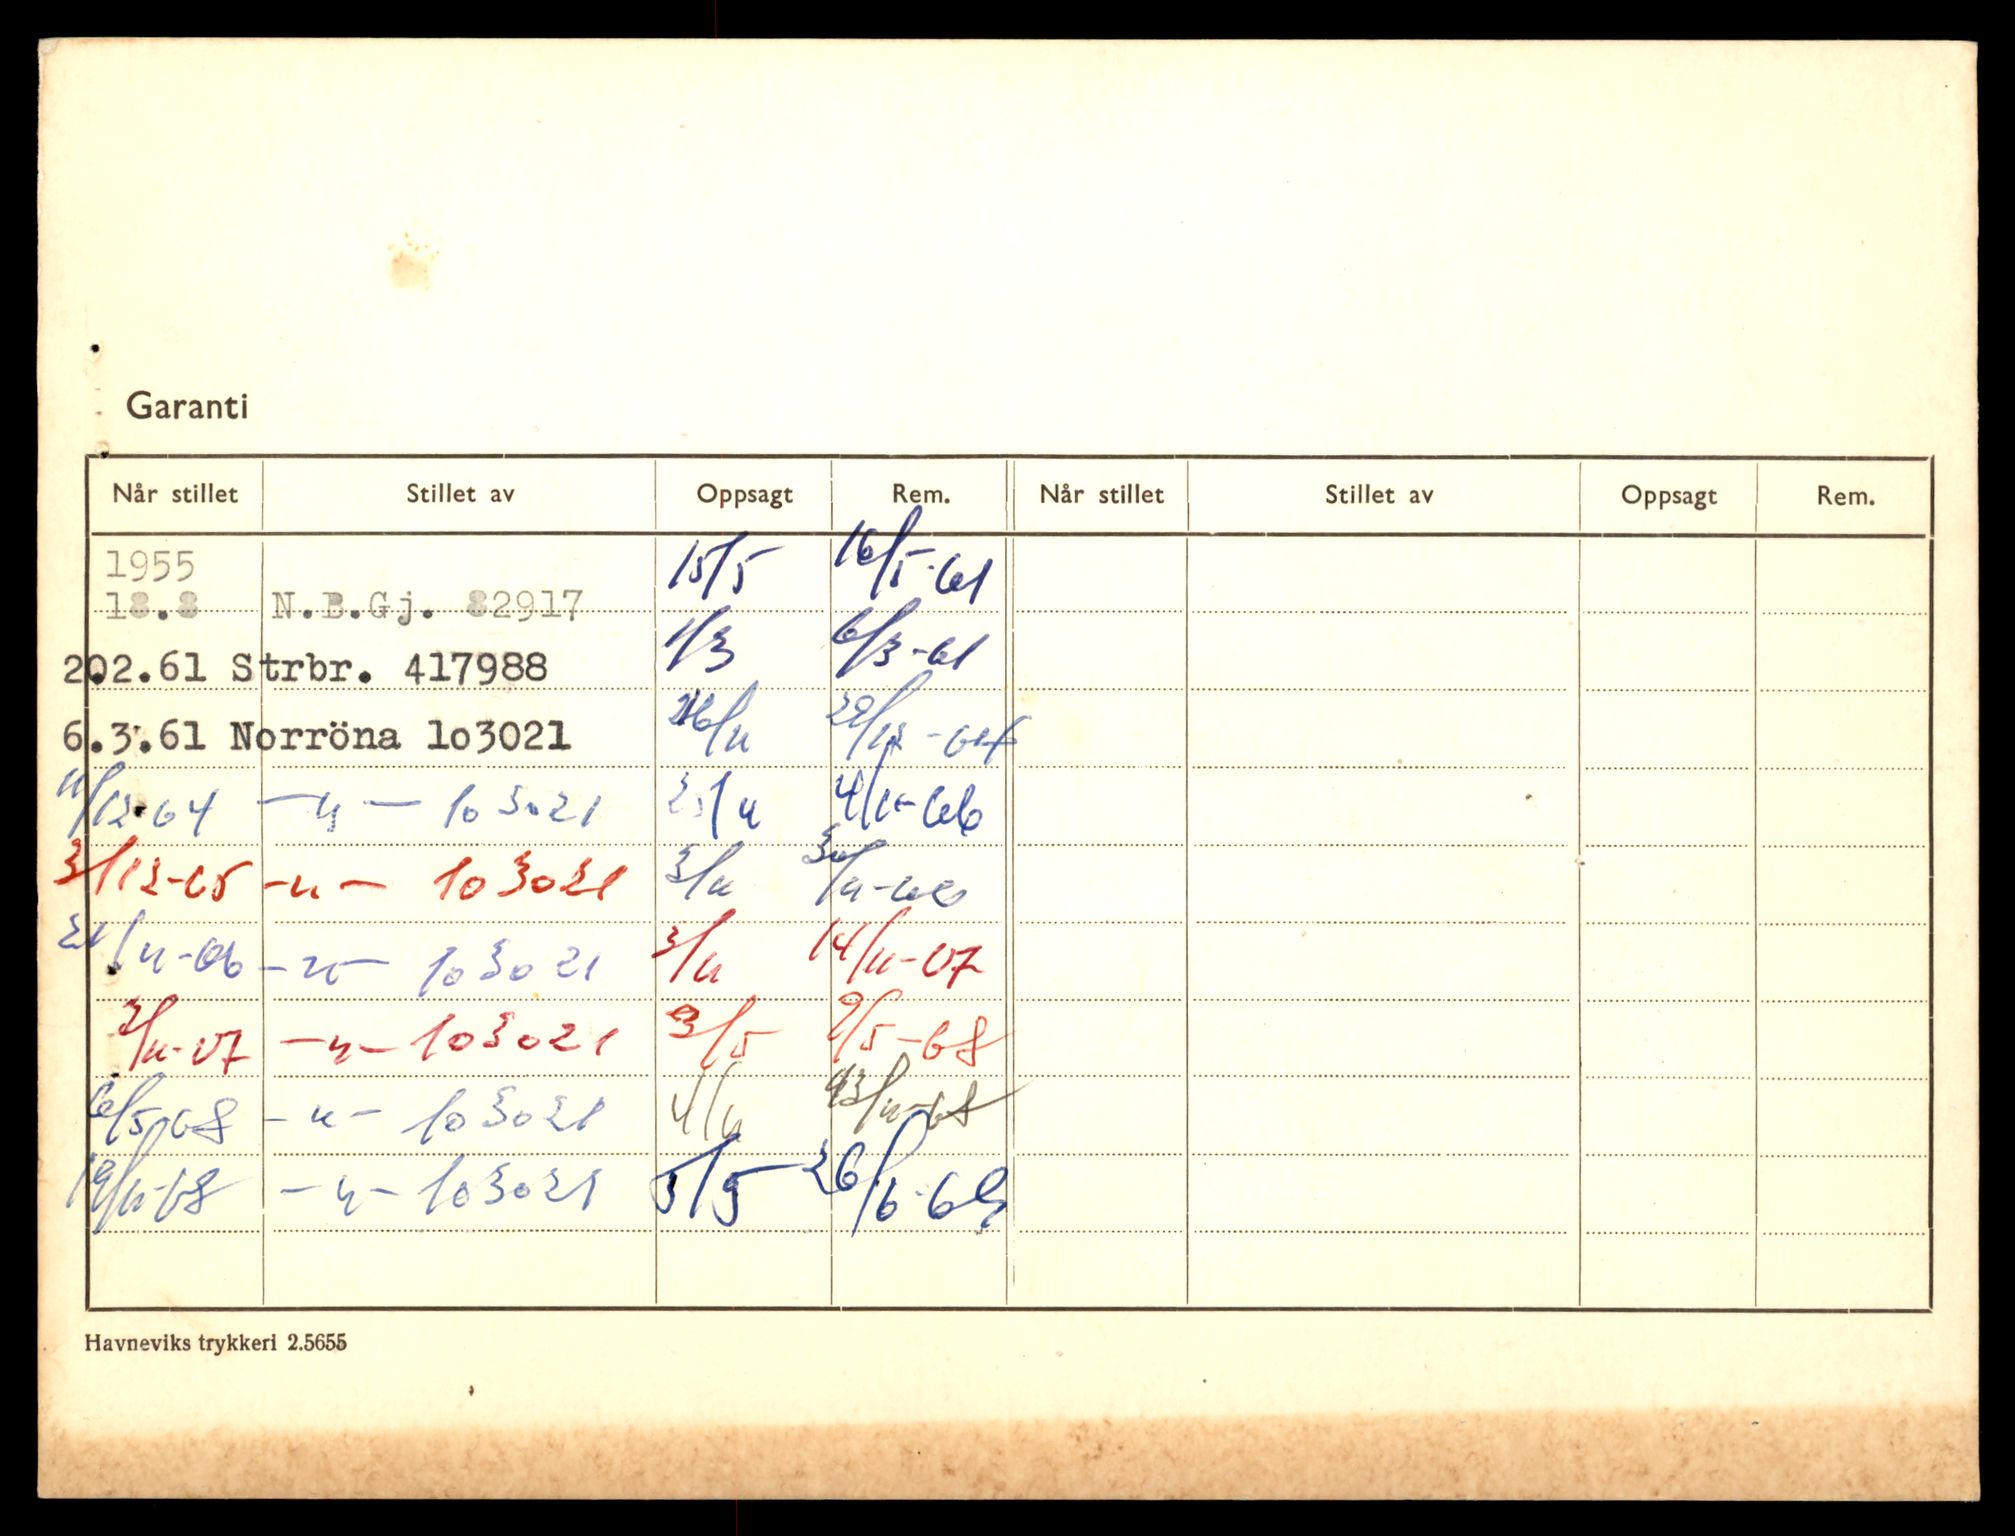 Garanti
Når stillet Stillet av Oppsagt Rem. Når stillet Stillet av Oppsagt Rem.
1955 15/5 16/5-61
18.8 N.B.Gj. 82917
202.61 Strbr. 417988 1/3 6/3-61
6.3.61 Norröna 1o3021 26/11
11/12-64 -"- 103021 25/11
3/12-65 -"- 103021 3/11
21/11-66 -"- 103021 3/11 14/11-67
2/11-67 -"- 103021 3/5 9/5-68
6/5-68 -"- 103021 4/11
19/11-68 -"- 103021 5/5 26/6-69
Havneviks trykkeri 2.5655